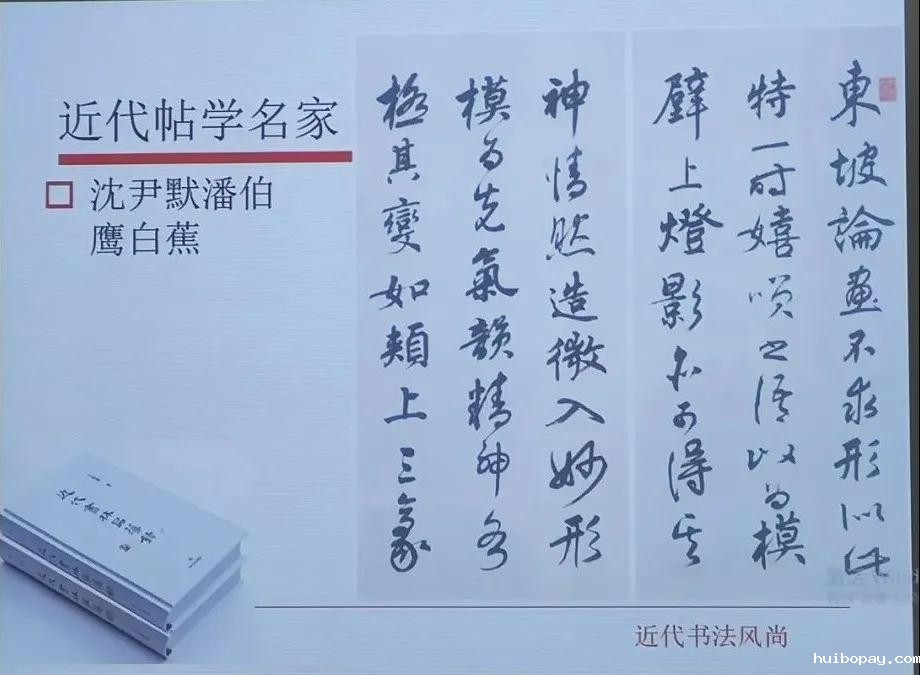 近代帖学名家
沈尹默潘伯
鹰白蕉
東坡論畫不求形似此
特一时嬉咲之語以為模
壁上燈影不可得其
神情然造微入妙形
模為先氣韻精神各
極其變如頰上三毫
近代書林品藻錄
近代书法风尚
huibopay.com